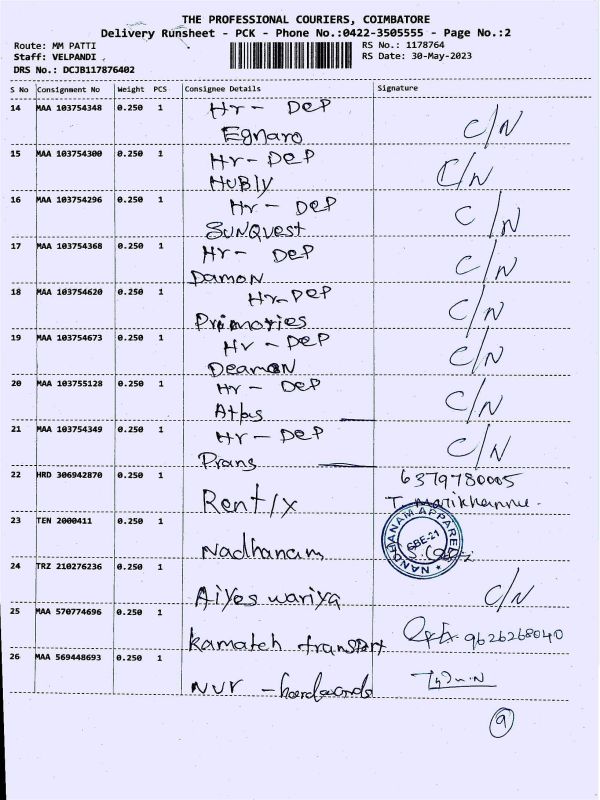 THE PROFESSIONAL COURIERS, COIMBATORE
Delivery Runsheet - PCK - Phone No.:0422-3505555 - Page No.:2
Route: MM PATTI RS No.: 1178764
Staff: VELPANDI RS Date: 30-May-2023
DRS No.: DCJB117876402
S No Consignment No Weight PCS Consignee Details Signature
14 MAA 103754348 0.250 1 Hr - DeP
Egnaro C/N
15 MAA 103754300 0.250 1 Hr - DeP
HUBly C/N
16 MAA 103754296 0.250 1 Hr - DeP
SUNQuest C/N
17 MAA 103754368 0.250 1 Hr - DeP
Damon C/N
18 MAA 103754620 0.250 1 Hr - DeP
C/N
19 MAA 103754673 0.250 1 Hr - DeP
Deamon C/N
20 MAA 103755128 0.250 1 Hr - DeP
C/N
21 MAA 103754349 0.250 1 Hr - DeP
Prans C/N
22 HRD 306942870 0.250 1 6379780005
Rent/x T.
23 TEN 2000411 0.250 1 NANDHANAM APPAREL
Nadhanam
24 TRZ 210276236 0.250 1
Aiyes wariya C/N
25 MAA 570774696 0.250 1
Kamateh transport 9626268040
26 MAA 569448693 0.250 1
NUR -
9